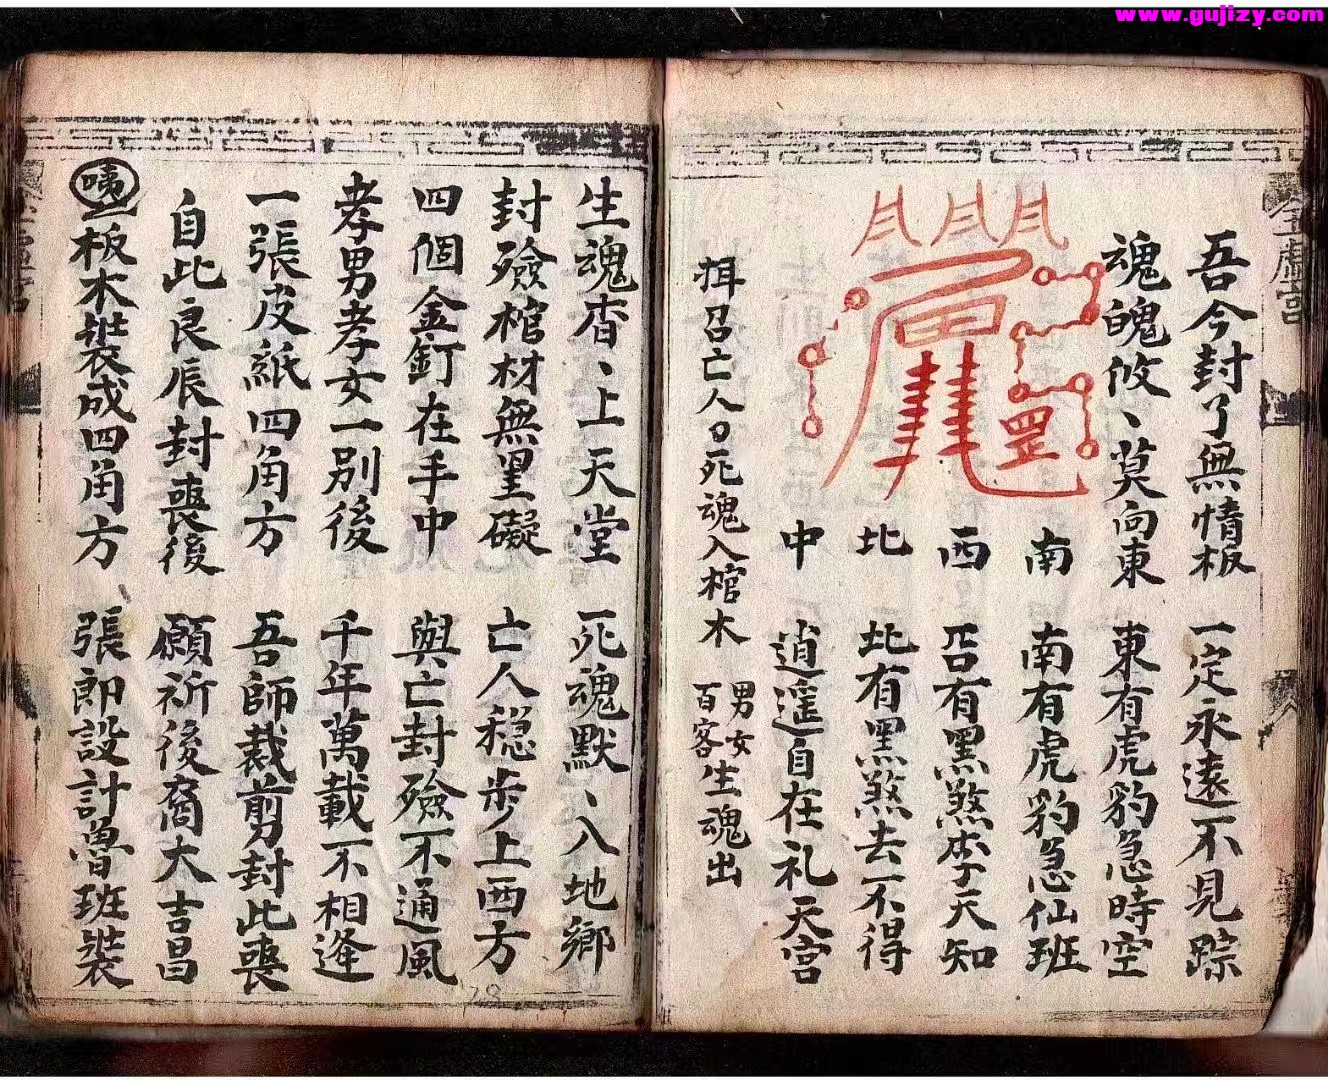 www.gujizy.com
吾今封了無情板 一定永遠不見踪
魂魄攸、莫向東 東有虎豹急時空
南 南有虎豹急仙班
西 西有黑煞李天知
北 北有黑煞去不得
中 逍遥自在礼天宮
召亡人 死魂入棺木 男女百客生魂出
罡
生魂杳、上天堂 死魂默、入地鄉
封殮棺材無里礙 亡人穏步上西方
四個金釘在手中 與亡封殮不通風
孝男孝女一別後 千年萬載不相逢
一張皮紙四角方 吾師裁剪封此喪
自此良辰封喪後 願祈後裔大吉昌
咦 一板木裝成四角方 張郎設計魯班裝